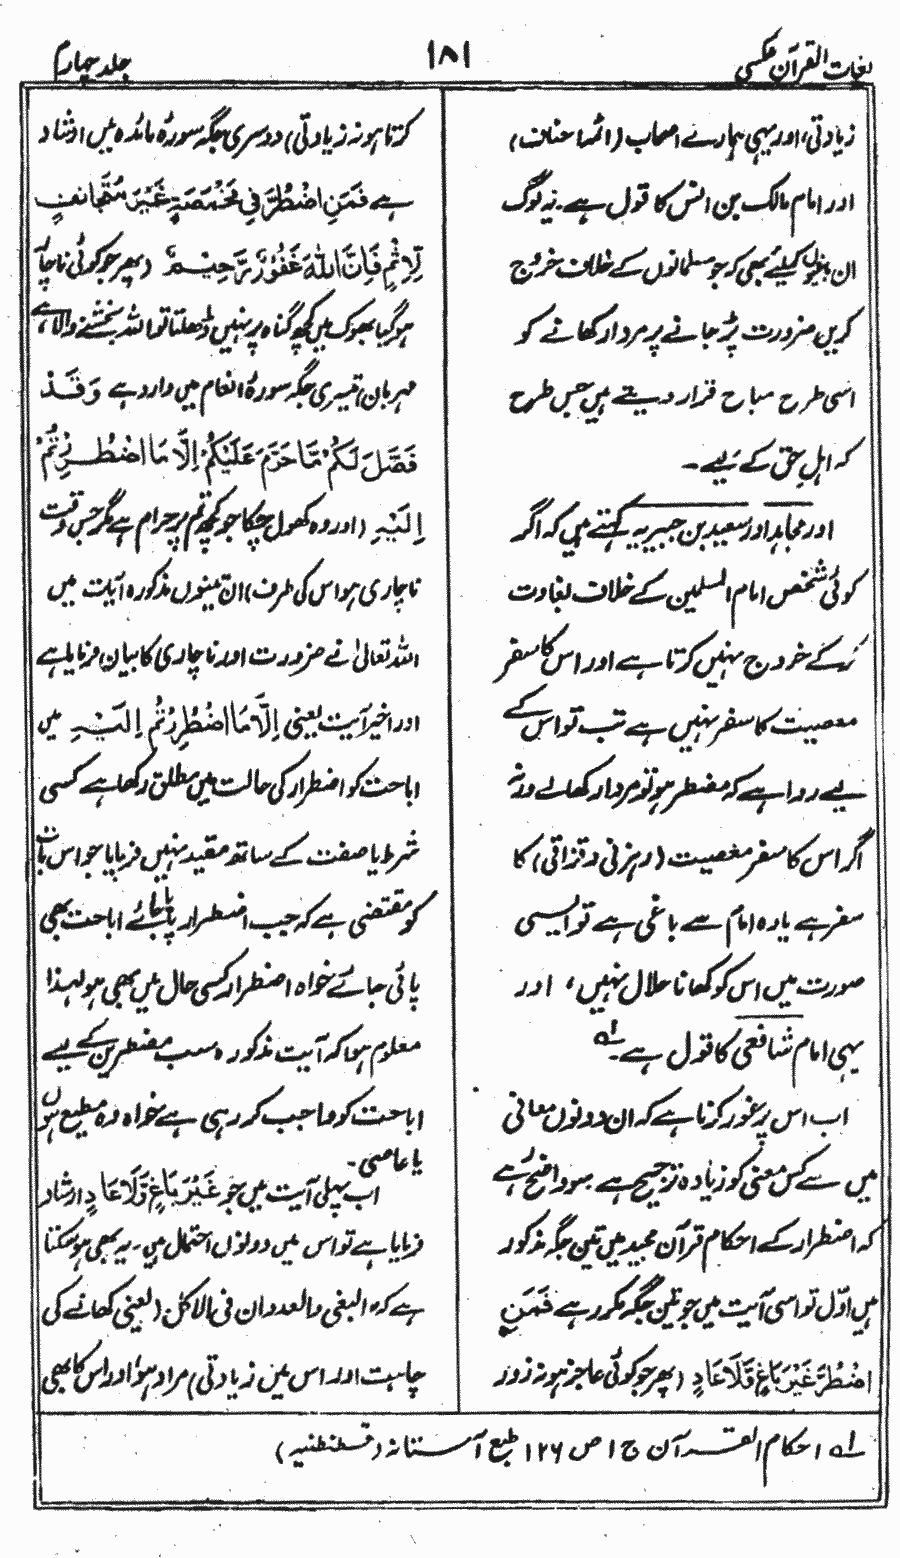 لغات القرآن عکسی
۱۸۱
جلد چہارم
زیادتی، اور یہی ہمارے اصحاب (ائمہ احناف)
اور امام مالک بن انس کا قول ہے۔ یہ لوگ
ان باغیوں کیلئے بھی کہ جو مسلمانوں کے خلاف خروج
کریں ضرورت پڑ جانے پر مردار کھانے کو
اسی طرح مباح قرار دیتے ہیں جس طرح
کہ اہلِ حق کے لیے۔
اور مجاہد اور سعید بن جبیر یہ کہتے ہیں کہ اگر
کوئی شخص امام المسلمین کے خلاف بغاوت
کرکے خروج نہیں کرتا ہے اور اس کا سفر
معصیت کا سفر نہیں ہے تب تو اس کے
لیے روا ہے کہ مضطر ہو تو مردار کھالے ورنہ
اگر اس کا سفر معصیت (رہزنی و قزاقی) کا
سفر ہے یا وہ امام سے باغی ہے تو ایسی
صورت میں اس کو کھانا حلال نہیں، اور
یہی امام شافعی کا قول ہے۔ لہ
اب اس پر غور کرنا ہے کہ ان دونوں معانی
میں سے کس معنی کو زیادہ ترجیح ہے سو واضح رہے
کہ اضطرار کے احکام قرآن مجید میں تین جگہ مذکور
ہیں اوّل تو اسی آیت میں جو تین جگہ مکرر ہے فَمَنِ
اضْطُرَّ غَيْرَ بَاغٍ وَّلَا عَادٍ (پھر جو کوئی عاجز ہو نہ زور
کرتا ہو نہ زیادتی) دوسری جگہ سورۂ مائدہ میں ارشاد
ہے فَمَنِ اضْطُرَّ فِي مَخْمَصَةٍ غَيْرَ مُتَجَانِفٍ
لِّإِثْمٍ فَإِنَّ اللهَ غَفُوْرٌ رَّحِيْمٌ (پھر جو کوئی ناچار
ہو گیا بھوک میں کچھ گناہ پر نہیں ڈھلتا تو اللہ بخشنے والا ہے،
مہربان) تیسری جگہ سورۂ انعام میں وارد ہے وَقَدْ
فَصَّلَ لَكُمْ مَّا حَرَّمَ عَلَيْكُمْ إِلَّا مَا اضْطُرِرْتُمْ
إِلَيْهِ (اور وہ کھول چکا جو کچھ تم پر حرام ہے مگر جس وقت
ناچاری ہو اس کی طرف) ان تینوں مذکورہ آیات میں
اللہ تعالیٰ نے ضرورت اور ناچاری کا بیان فرمایا ہے
اور اخیر آیت یعنی إِلَّا مَا اضْطُرِرْتُمْ إِلَيْهِ میں
اباحت کو اضطرار کی حالت میں مطلق رکھا ہے کسی
شرط یا صفت کے ساتھ مقید نہیں فرمایا جو اس بات
کو مقتضی ہے کہ جب اضطرار پایا جائے اباحت بھی
پائی جائے خواہ اضطرار کسی حال میں بھی ہو لہذا
معلوم ہوا کہ آیت مذکورہ سب مضطرین کے لیے
اباحت کو واجب کر رہی ہے خواہ وہ مطیع ہوں
یا عاصی۔
اب پہلی آیت میں جو غَيْرَ بَاغٍ وَّلَا عَادٍ ارشاد
فرمایا ہے تو اس میں دونوں احتمال ہیں۔ یہ بھی ہو سکتا
ہے کہ البغی والعدوان فی الاکل (یعنی کھانے کی
چاہت اور اس میں زیادتی) مراد ہو اور اس کا بھی
لہ احکام القرآن ج ۱ ص ۱۲۶ طبع آستانہ (قسطنطنیہ)